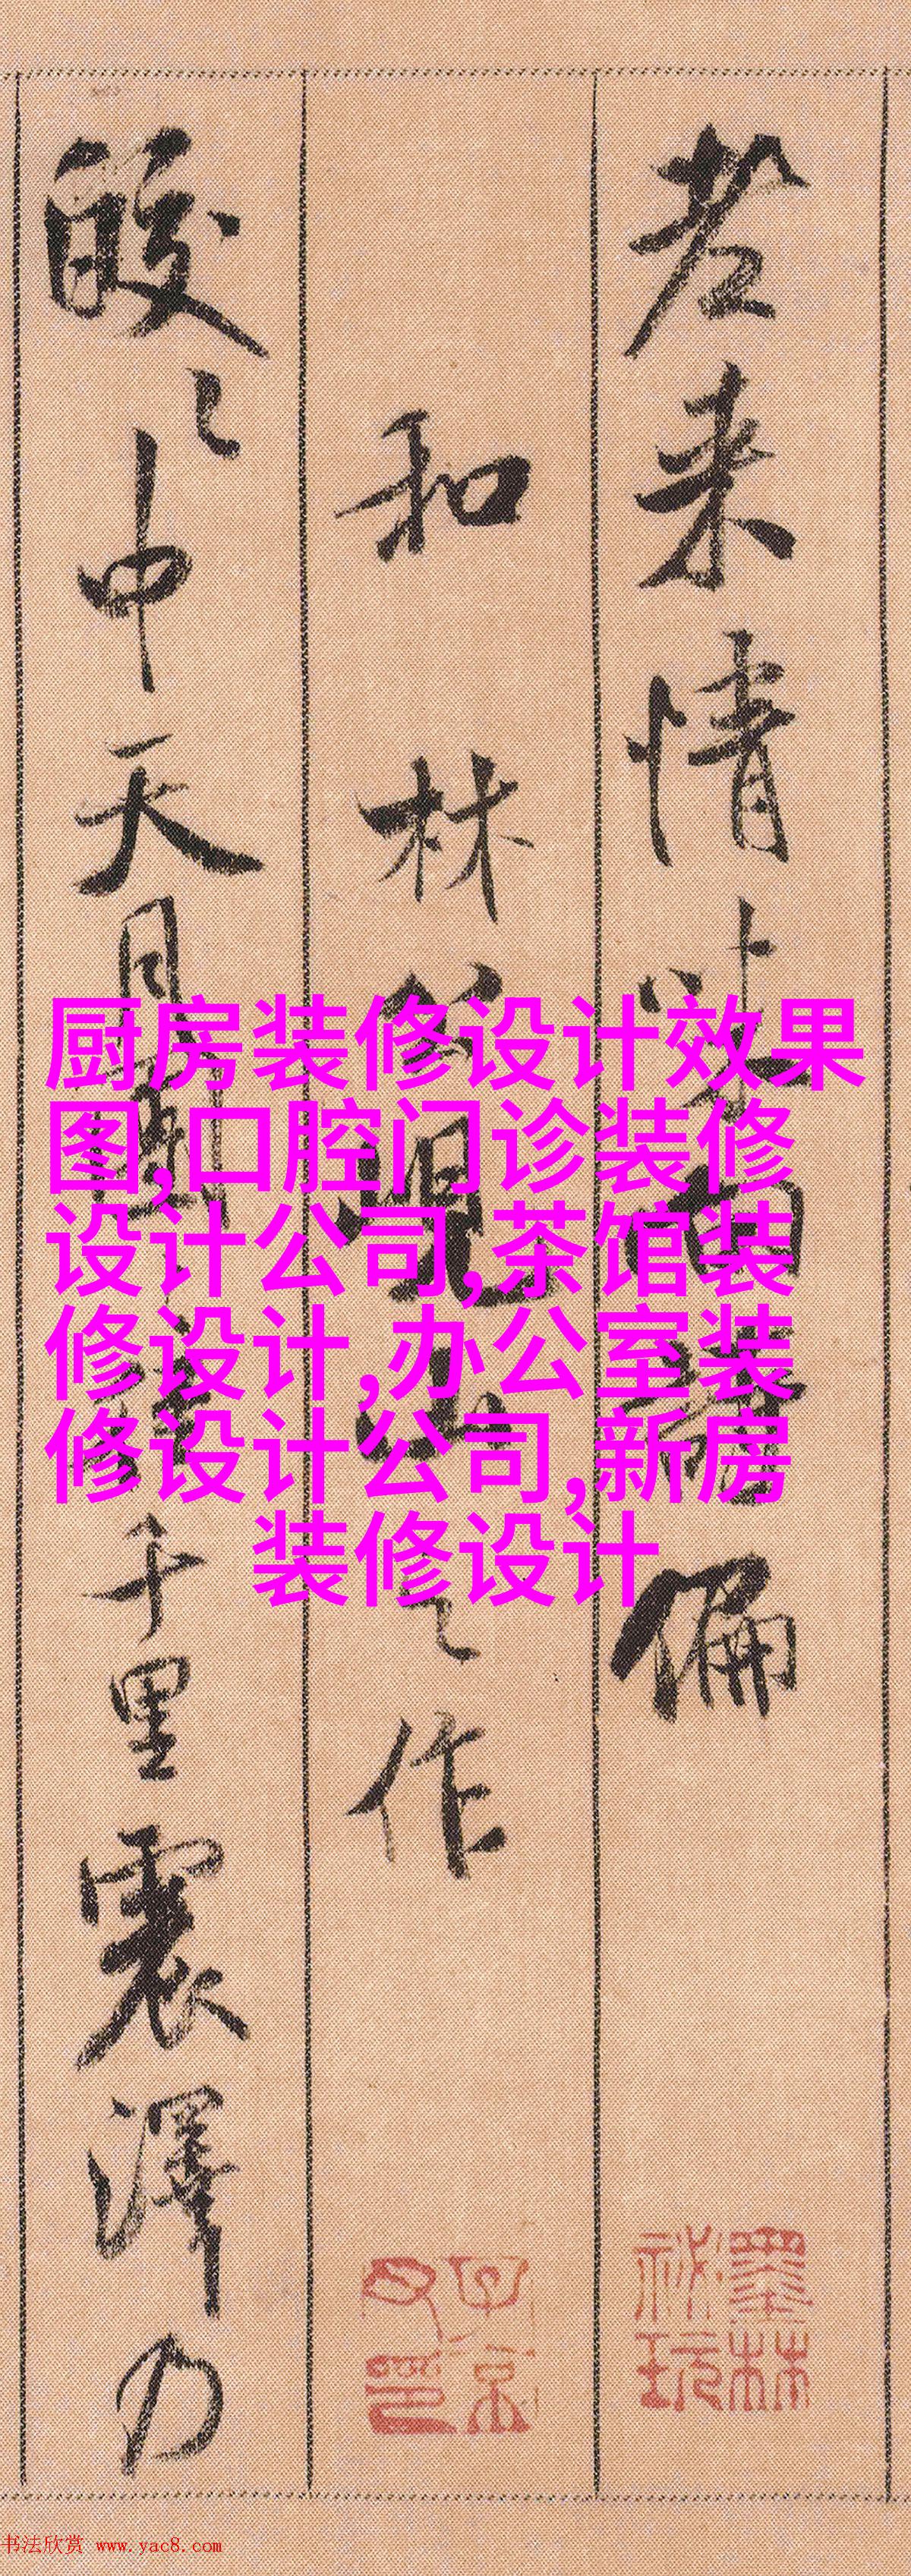 老来情味向詩偏
和林公峴山之作
皎〻中天月團〻徑千里震澤乃
厨房装修设计效果
图,口腔门诊装修
设计公司,茶馆装
修设计,办公室装
修设计公司,新房
装修设计
墨林祕玩
书法欣赏 www.yac8.com